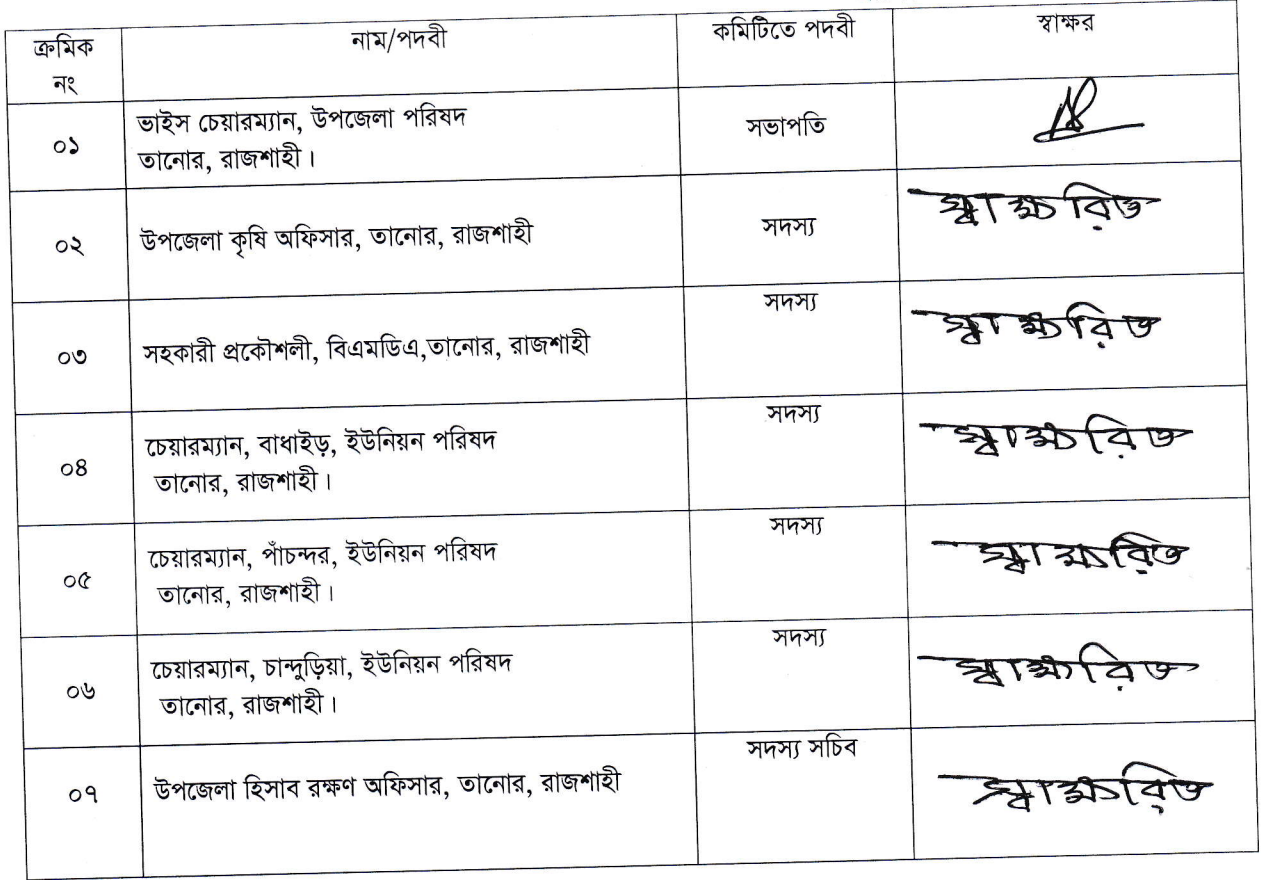 ক্রমিক নং নাম/পদবী কমিটিতে পদবী স্বাক্ষর
০১ ভাইস চেয়ারম্যান, উপজেলা পরিষদ সভাপতি
তানোর, রাজশাহী।
০২ উপজেলা কৃষি অফিসার, তানোর, রাজশাহী সদস্য স্বাক্ষরিত
০৩ সহকারী প্রকৌশলী, বিএমডিএ,তানোর, রাজশাহী সদস্য স্বাক্ষরিত
০৪ চেয়ারম্যান, বাধাইড়, ইউনিয়ন পরিষদ সদস্য স্বাক্ষরিত
তানোর, রাজশাহী।
০৫ চেয়ারম্যান, পাঁচন্দর, ইউনিয়ন পরিষদ সদস্য স্বাক্ষরিত
তানোর, রাজশাহী।
০৬ চেয়ারম্যান, চান্দুড়িয়া, ইউনিয়ন পরিষদ সদস্য স্বাক্ষরিত
তানোর, রাজশাহী।
০৭ উপজেলা হিসাব রক্ষণ অফিসার, তানোর, রাজশাহী সদস্য সচিব স্বাক্ষরিত